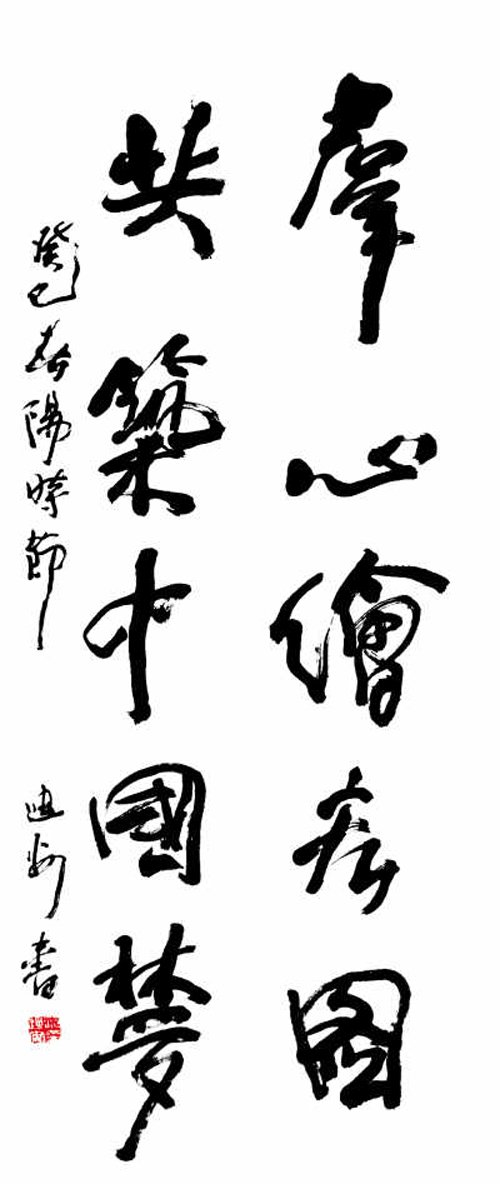 羣心繪春图
共築中國夢
癸巳春陽時節
迪 書